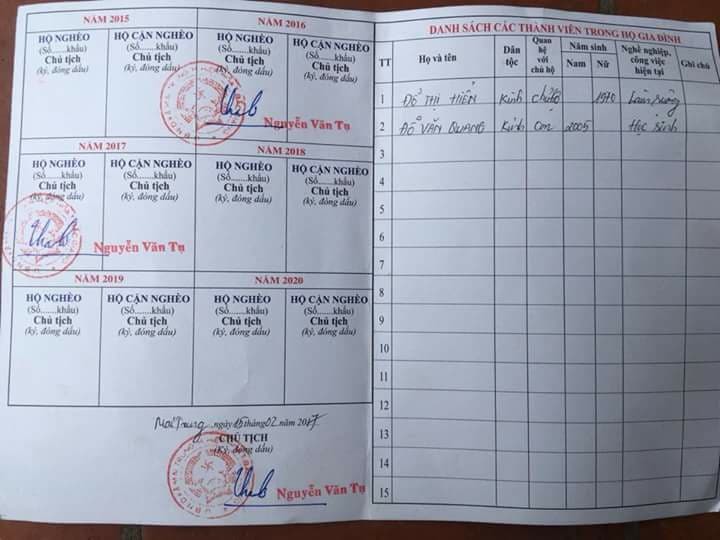 NĂM 2015
HỘ NGHÈO
(Số.......khẩu)
Chủ tịch
(ký, đóng dấu)
HỘ CẬN NGHÈO
(Số.......khẩu)
Chủ tịch
(ký, đóng dấu)
NĂM 2016
HỘ NGHÈO
(Số.......khẩu)
Chủ tịch
HỘ CẬN NGHÈO
(Số.......khẩu)
Chủ tịch
(ký, đóng dấu)
Nguyễn Văn Tụ
NĂM 2017
HỘ NGHÈO
(Số.......khẩu)
Chủ tịch
(ký, đóng dấu)
HỘ CẬN NGHÈO
(Số.......khẩu)
Chủ tịch
(ký, đóng dấu)
Nguyễn Văn Tụ
NĂM 2018
HỘ NGHÈO
(Số.......khẩu)
Chủ tịch
(ký, đóng dấu)
HỘ CẬN NGHÈO
(Số.......khẩu)
Chủ tịch
(ký, đóng dấu)
NĂM 2019
HỘ NGHÈO
(Số.......khẩu)
Chủ tịch
(ký, đóng dấu)
HỘ CẬN NGHÈO
(Số.......khẩu)
Chủ tịch
(ký, đóng dấu)
NĂM 2020
HỘ NGHÈO
(Số.......khẩu)
Chủ tịch
(ký, đóng dấu)
HỘ CẬN NGHÈO
(Số.......khẩu)
Chủ tịch
(ký, đóng dấu)
Mai Trung, ngày 15 tháng 02 năm 2017
CHỦ TỊCH
(Ký, đóng dấu)
Nguyễn Văn Tụ
DANH SÁCH CÁC THÀNH VIÊN TRONG HỘ GIA ĐÌNH
TT Họ và tên Dân tộc Quan hệ với chủ hộ Năm sinh Nam Nữ Nghề nghiệp, công việc hiện tại Ghi chú
1 ĐỖ THỊ HIỂN Kinh chủ hộ 1970 Làm ruộng
2 ĐỖ VĂN QUANG Kinh con 2005 Học sinh
3
4
5
6
7
8
9
10
11
12
13
14
15